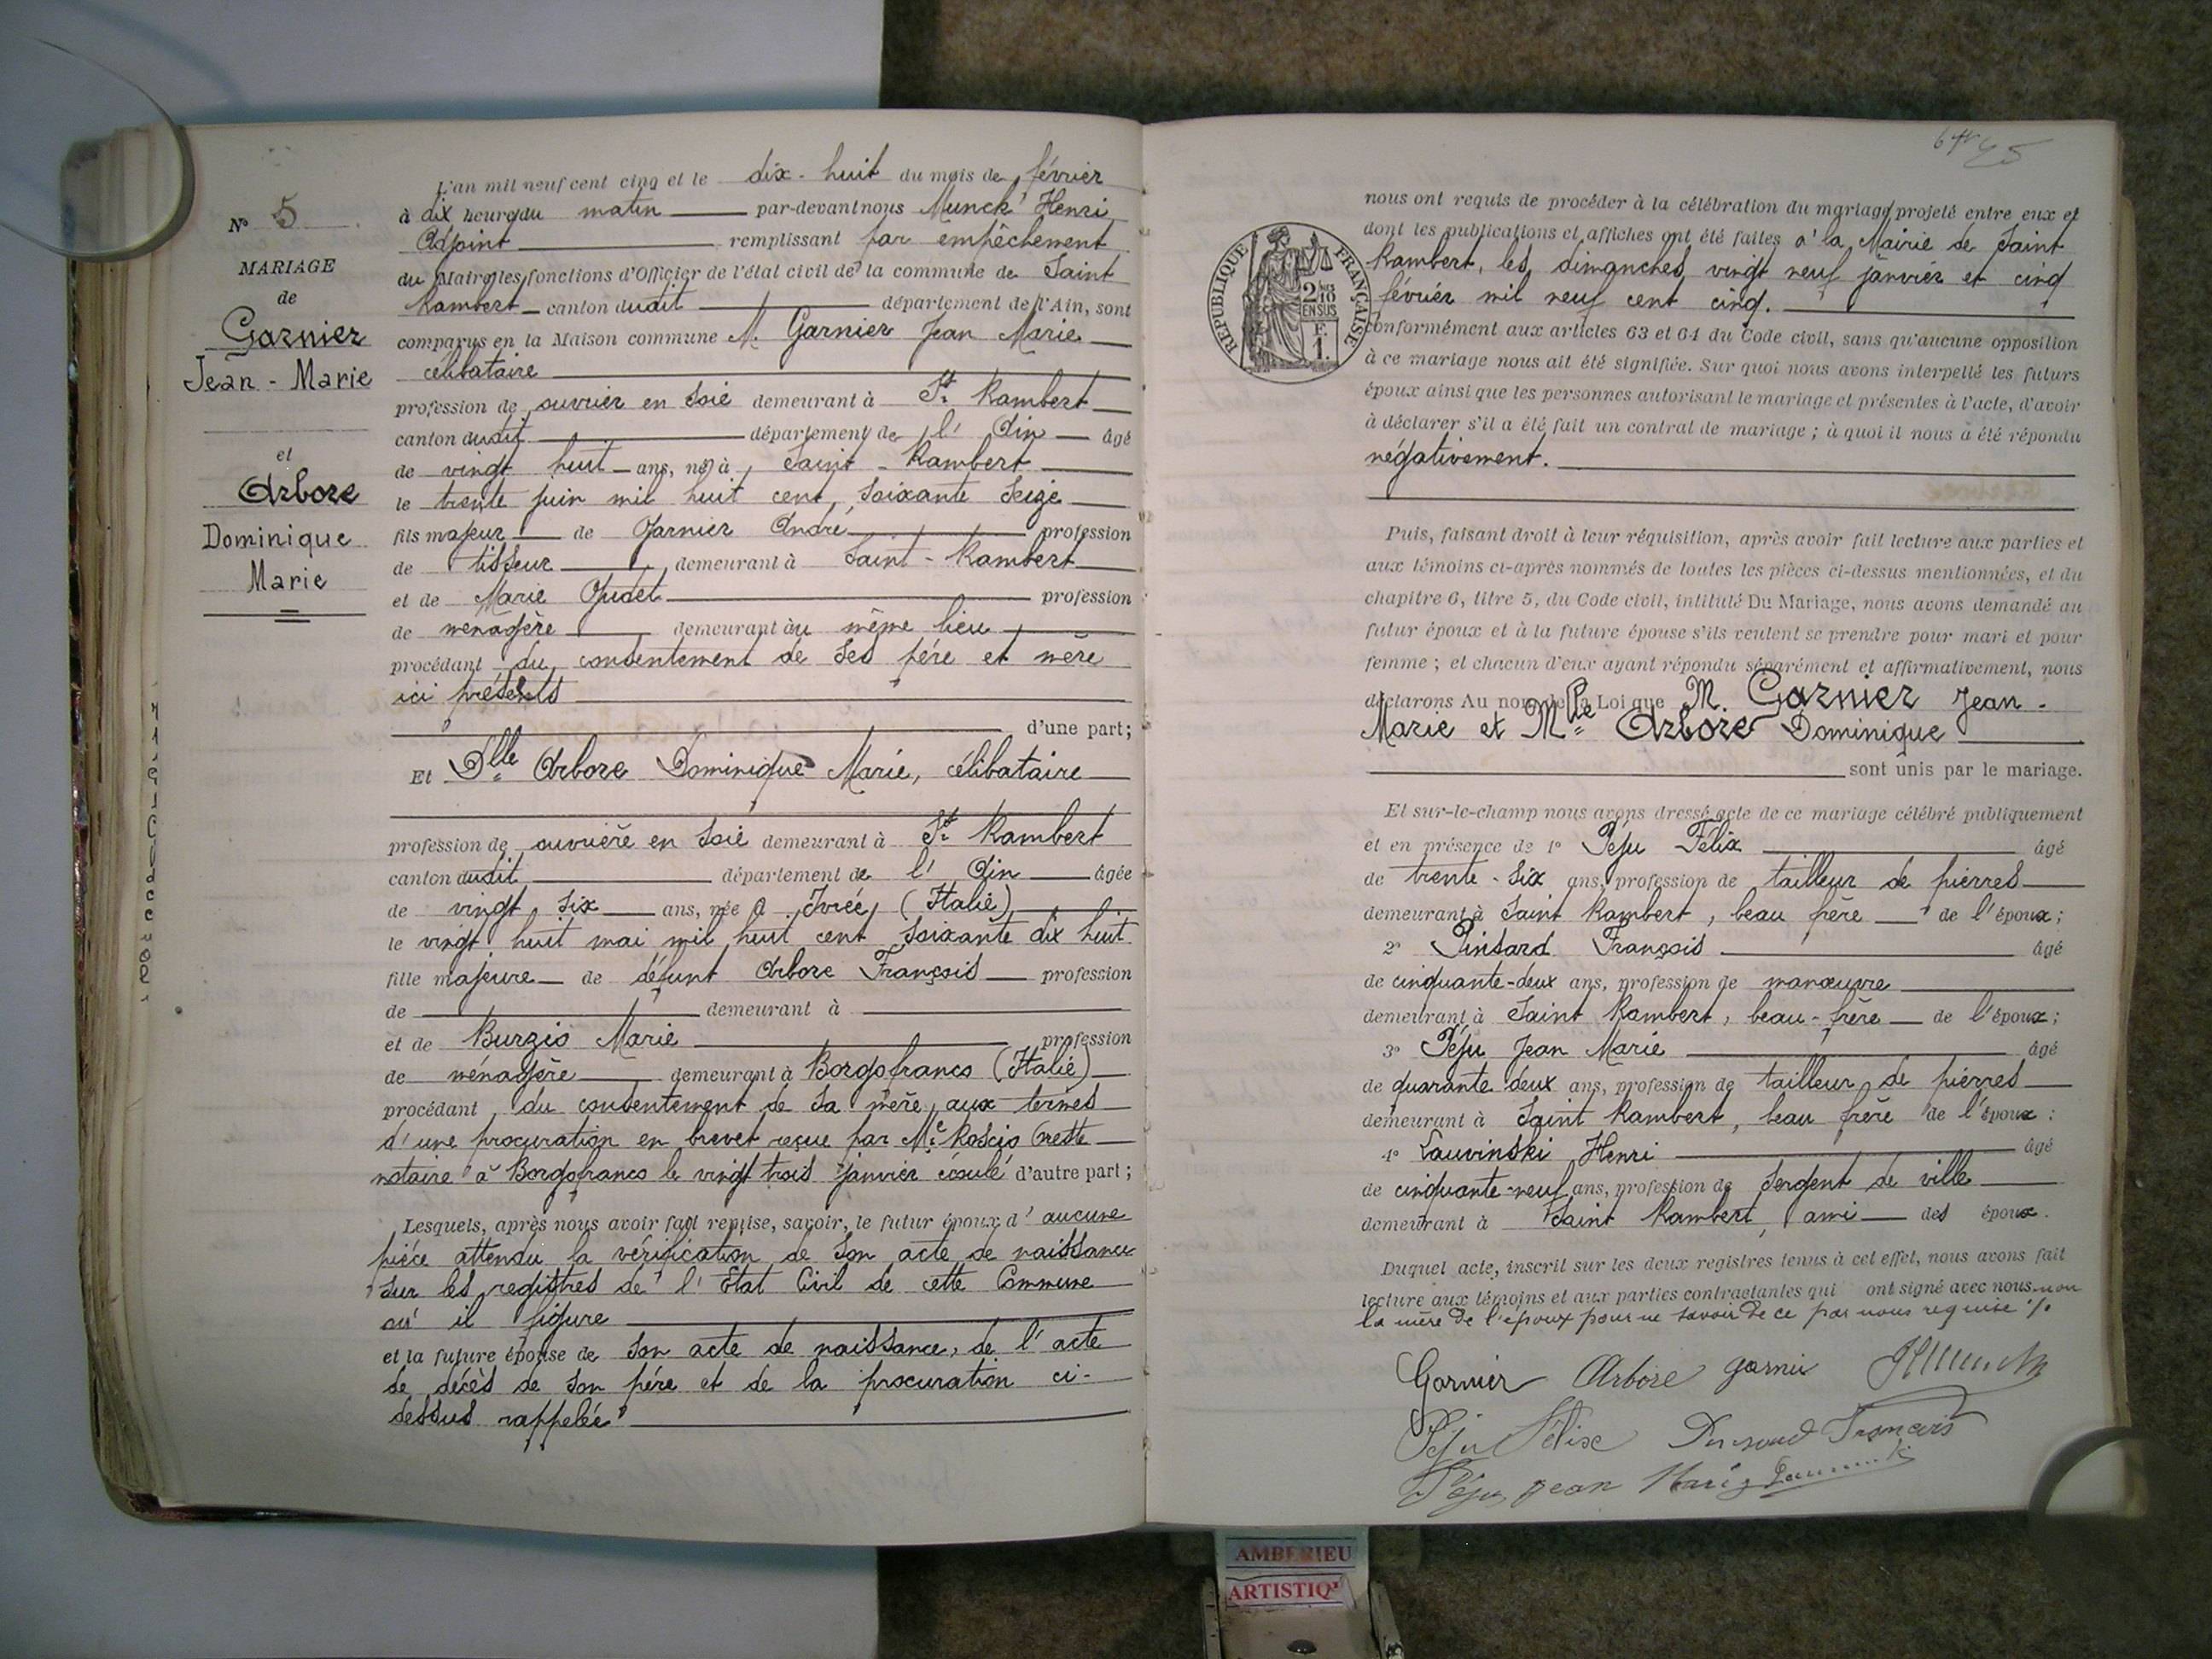 N° 5
MARIAGE
de
Garnier
Jean - Marie
et
Arbore
Dominique
Marie
L'an mil neuf cent cinq et le dix-huit du mois de février
à dix heures du matin par-devant nous Munck Henri
Adjoint remplissant par empêchement
du Maire les fonctions d'Officier de l'état civil de la commune de Saint
Rambert canton dudit département de l'Ain, sont
comparus en la Maison commune M. Garnier Jean Marie
célibataire
profession de ouvrier en soie demeurant à St Rambert
canton dudit département de l'Ain âgé
de vingt huit ans, né à Saint-Rambert
le trente juin mil huit cent soixante seize
fils majeur de Garnier André profession
de tisseur demeurant à Saint-Rambert
et de Marie Gudet profession
de ménagère demeurant au même lieu
procédant du consentement de ses père et mère
ici présents
d'une part;
Et Dlle Arbore Dominique Marie, célibataire
profession de ouvrière en soie demeurant à St Rambert
canton dudit département de l'Ain âgée
de vingt six ans, née à Ivrée (Italie)
le vingt huit mai mil huit cent soixante dix huit
fille majeure de défunt Arbore François profession
de demeurant à
et de Burzio Marie profession
de ménagère demeurant à Borgofranco (Italie)
procédant du consentement de sa mère, aux termes
d'une procuration en brevet reçue par Me Roscio Oreste
notaire à Borgofranco le vingt trois janvier écoulé d'autre part;
Lesquels, après nous avoir fait remise, savoir, le futur époux d'aucune
pièce attendu la vérification de son acte de naissance
sur les registres de l'Etat Civil de cette Commune
où il figure
et la future épouse de son acte de naissance, de l'acte
de décès de son père et de la procuration ci-
dessus rappelée
nous ont requis de procéder à la célébration du mariage projeté entre eux et
dont les publications et affiches ont été faites à la Mairie de Saint
Rambert, les dimanches vingt neuf janvier et cinq
février mil neuf cent cinq.
conformément aux articles 63 et 64 du Code civil, sans qu'aucune opposition
à ce mariage nous ait été signifiée. Sur quoi nous avons interpellé les futurs
époux ainsi que les personnes autorisant le mariage et présentes à l'acte, d'avoir
à déclarer s'il a été fait un contrat de mariage; à quoi il nous a été répondu
négativement.
RÉPUBLIQUE FRANÇAISE
2/10
EN SUS
F.
1.
Puis, faisant droit à leur réquisition, après avoir fait lecture aux parties et
aux témoins ci-après nommés de toutes les pièces ci-dessus mentionnées, et du
chapitre 6, titre 5, du Code civil, intitulé Du Mariage, nous avons demandé au
futur époux et à la future épouse s'ils veulent se prendre pour mari et pour
femme; et chacun d'eux ayant répondu séparément et affirmativement, nous
déclarons Au nom de la Loi que M. Garnier Jean-
Marie et Mlle Arbore Dominique
sont unis par le mariage.
Et sur-le-champ nous avons dressé acte de ce mariage célébré publiquement
et en présence de 1° Péju Félix âgé
de trente-six ans, profession de tailleur de pierres
demeurant à Saint Rambert, beau frère de l'époux;
2° Pinsard François âgé
de cinquante-deux ans, profession de manœuvre
demeurant à Saint Rambert, beau-frère de l'époux;
3° Péju Jean Marie âgé
de quarante deux ans, profession de tailleur de pierres
demeurant à Saint Rambert, beau frère de l'époux:
4° Lauvinski Henri âgé
de cinquante-neuf ans, profession de sergent de ville
demeurant à Saint Rambert, ami des époux.
Duquel acte, inscrit sur les deux registres tenus à cet effet, nous avons fait
lecture aux témoins et aux parties contractantes qui ont signé avec nous non
la mère de l'époux pour ne savoir de ce par nous requise
Garnier Arbore garnier HMunck
Péju Félix Pinsard François
Péju jean Marie
AMBERIEU
ARTISTIQ'